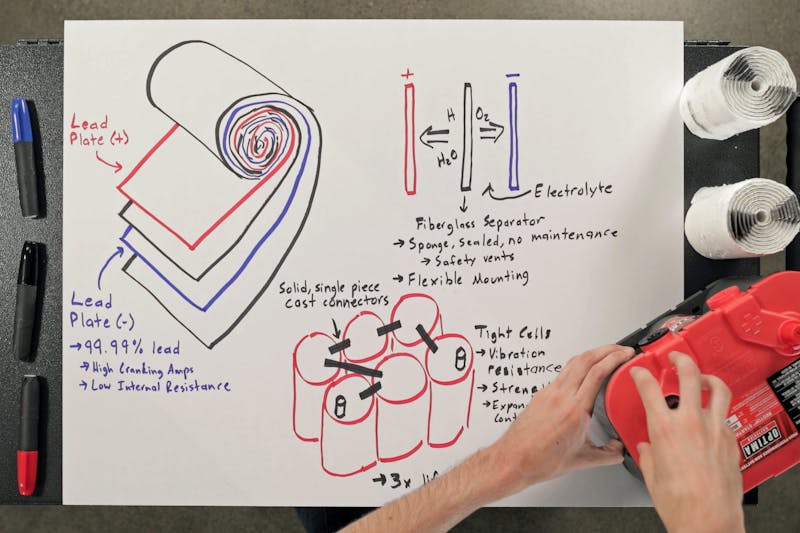 Lead
Plate (+)
Lead
Plate (-)
→ 99.99% lead
→ High Cranking Amps
→ Low Internal Resistance
+
-
H
O2
H2O
Electrolyte
Fiberglass Separator
→ Sponge, sealed, no maintenance
→ Safety vents
→ Flexible Mounting
Solid, single piece
cast connectors
Tight Cells
→ Vibration
resistance
→ Stren
→ Expan
→ 3x
OPTIMA
BATTERIES